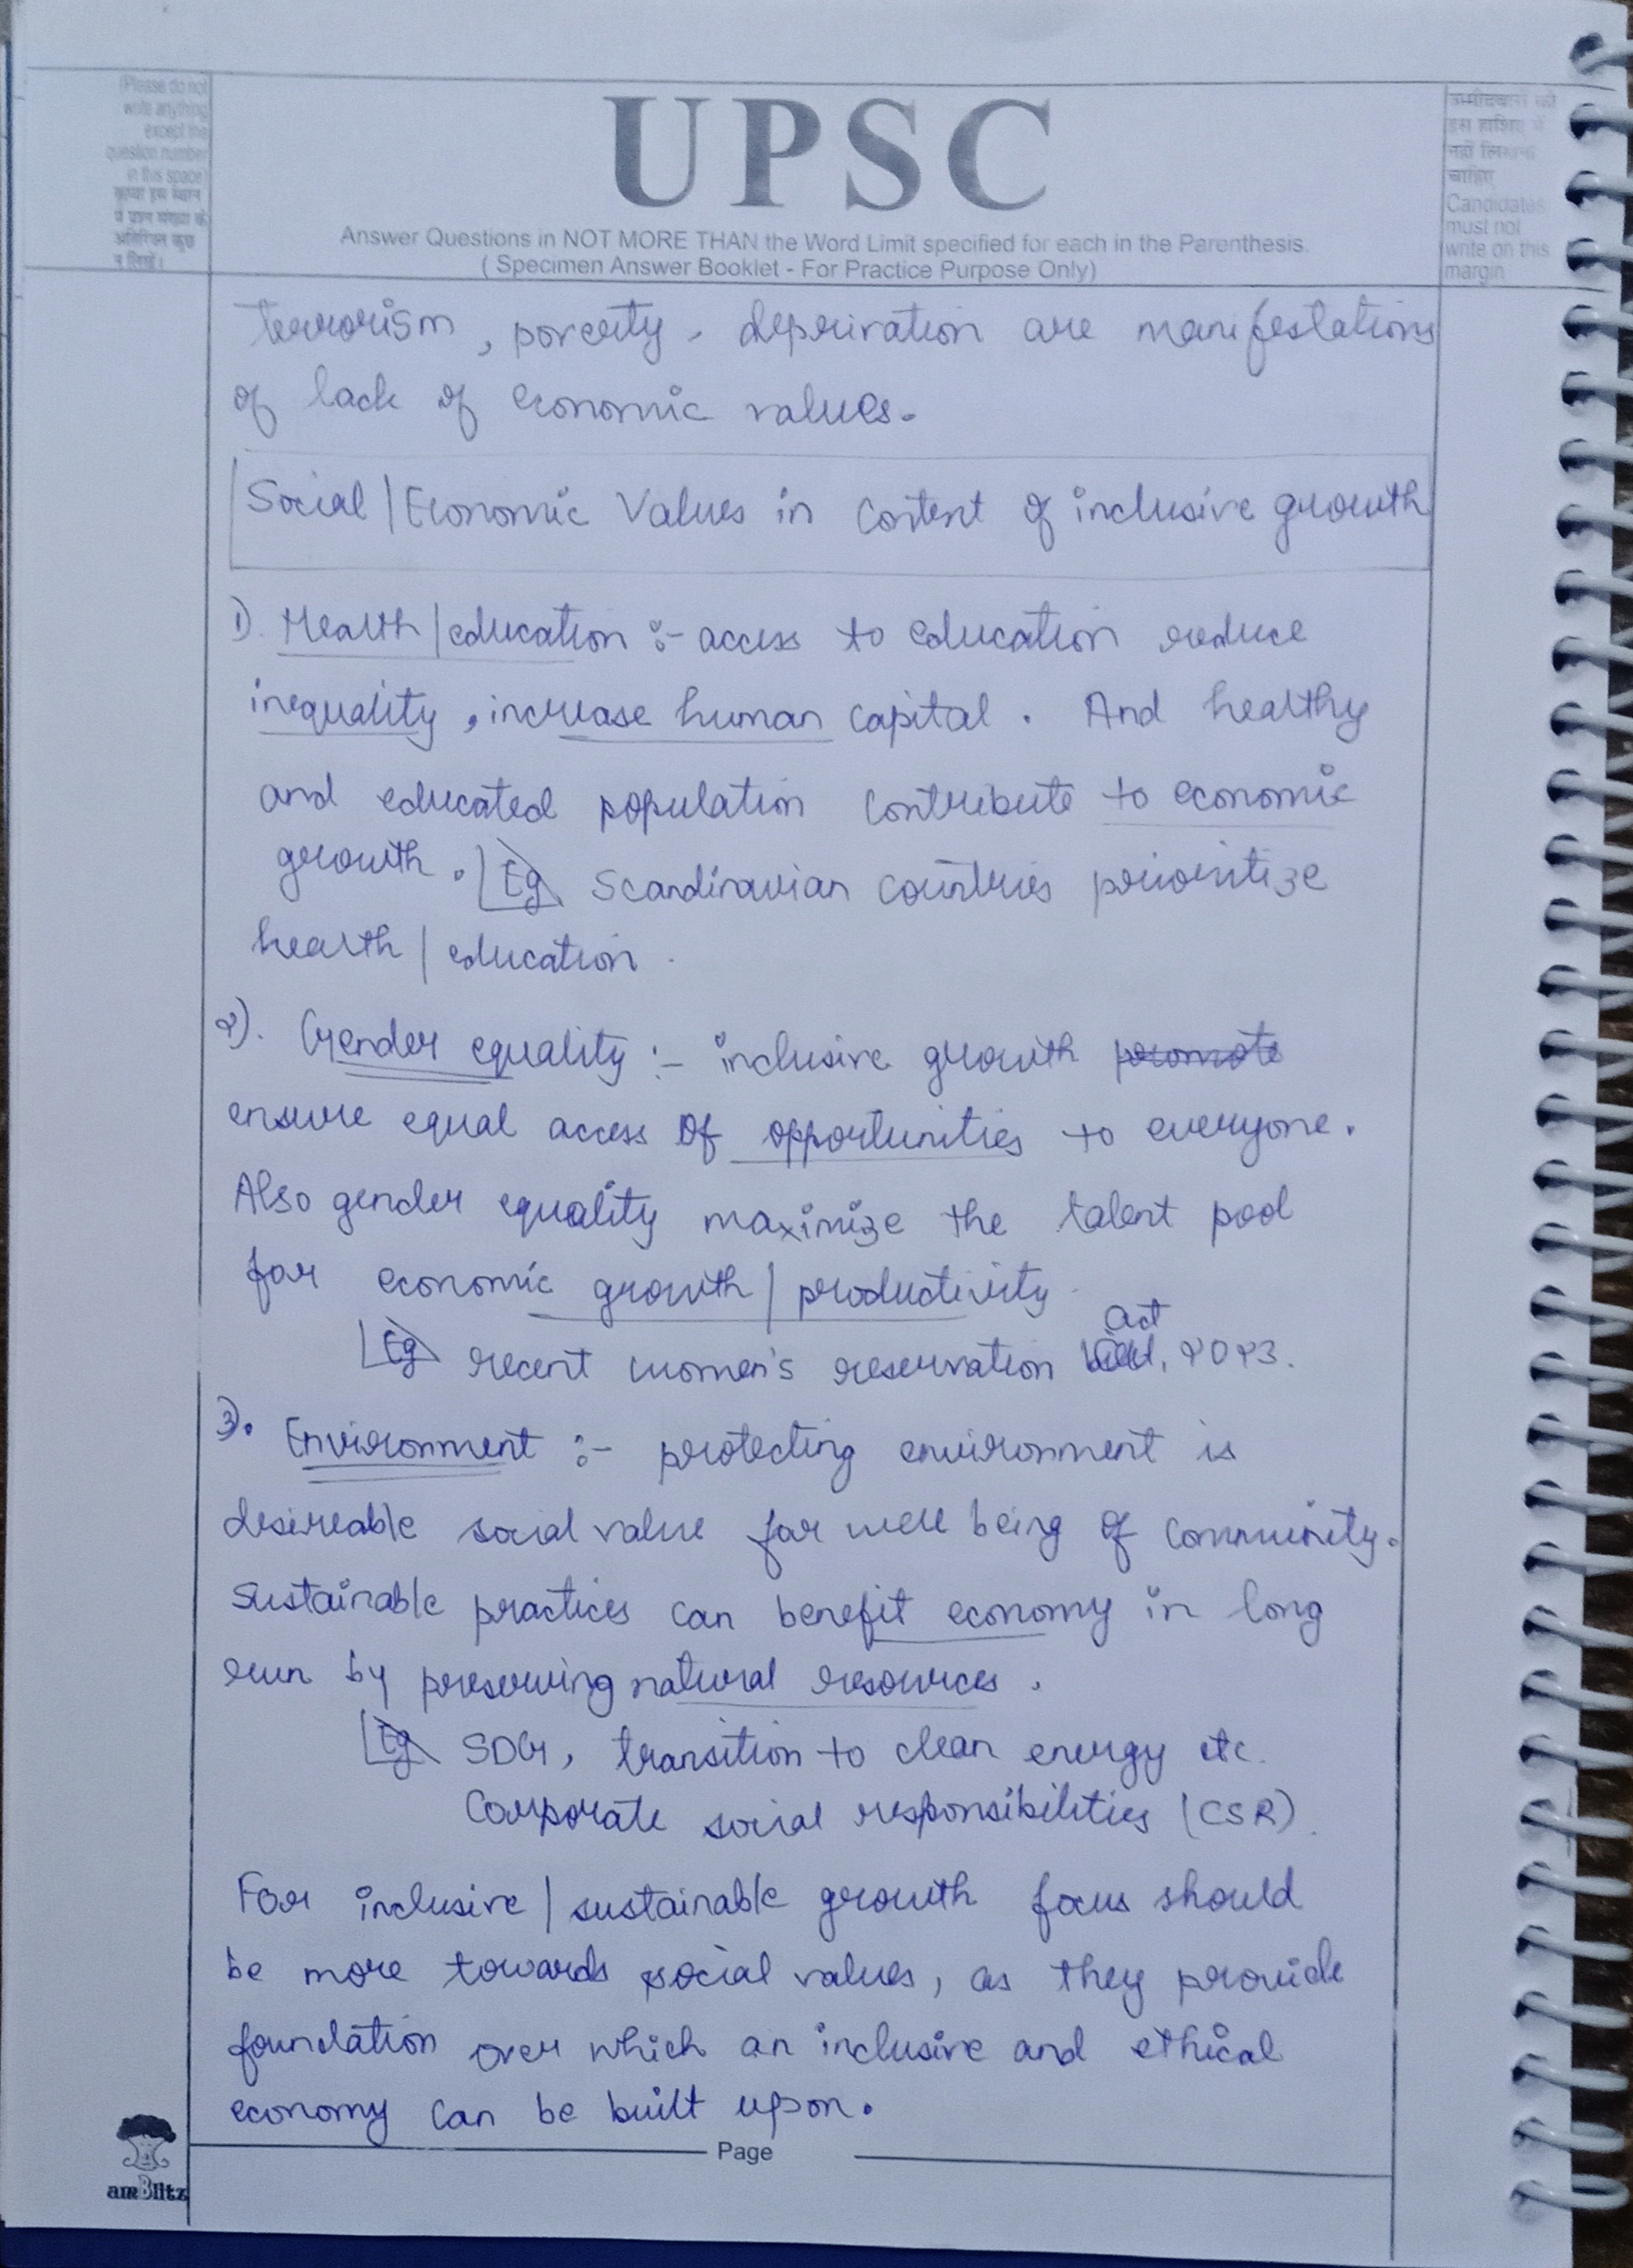 (Please do not
write anything
except the
question number
in this space)
कृपया इस स्थान
में प्रश्न संख्या के
अतिरिक्त कुछ
न लिखें।
UPSC
Answer Questions in NOT MORE THAN the Word Limit specified for each in the Parenthesis.
( Specimen Answer Booklet - For Practice Purpose Only)
उम्मीदवारों को
इस हाशिए में
नहीं लिखना
चाहिए
Candidates
must not
write on this
margin
terrorism, poverty, deprivation are manifestations
of lack of economic values.
Social | Economic Values in Content of inclusive growth
1). Health | education :- access to education reduce
inequality, increase human capital. And healthy
and educated population contribute to economic
growth. Eg Scandinavian countries prioritize
health | education.
2). Gender equality :- inclusive growth promote
ensure equal access of opportunities to everyone.
Also gender equality maximize the talent pool
for economic growth | productivity
act
Eg recent women's reservation 2023.
3). Environment :- protecting environment is
desireable social value for well being of community.
Sustainable practices can benefit economy in long
run by preserving natural resources.
Eg SDG, transition to clean energy etc.
Corporate social responsibilities (CSR).
For inclusive | sustainable growth focus should
be more towards social values, as they provide
foundation over which an inclusive and ethical
economy can be built upon.
Page
amBlitz